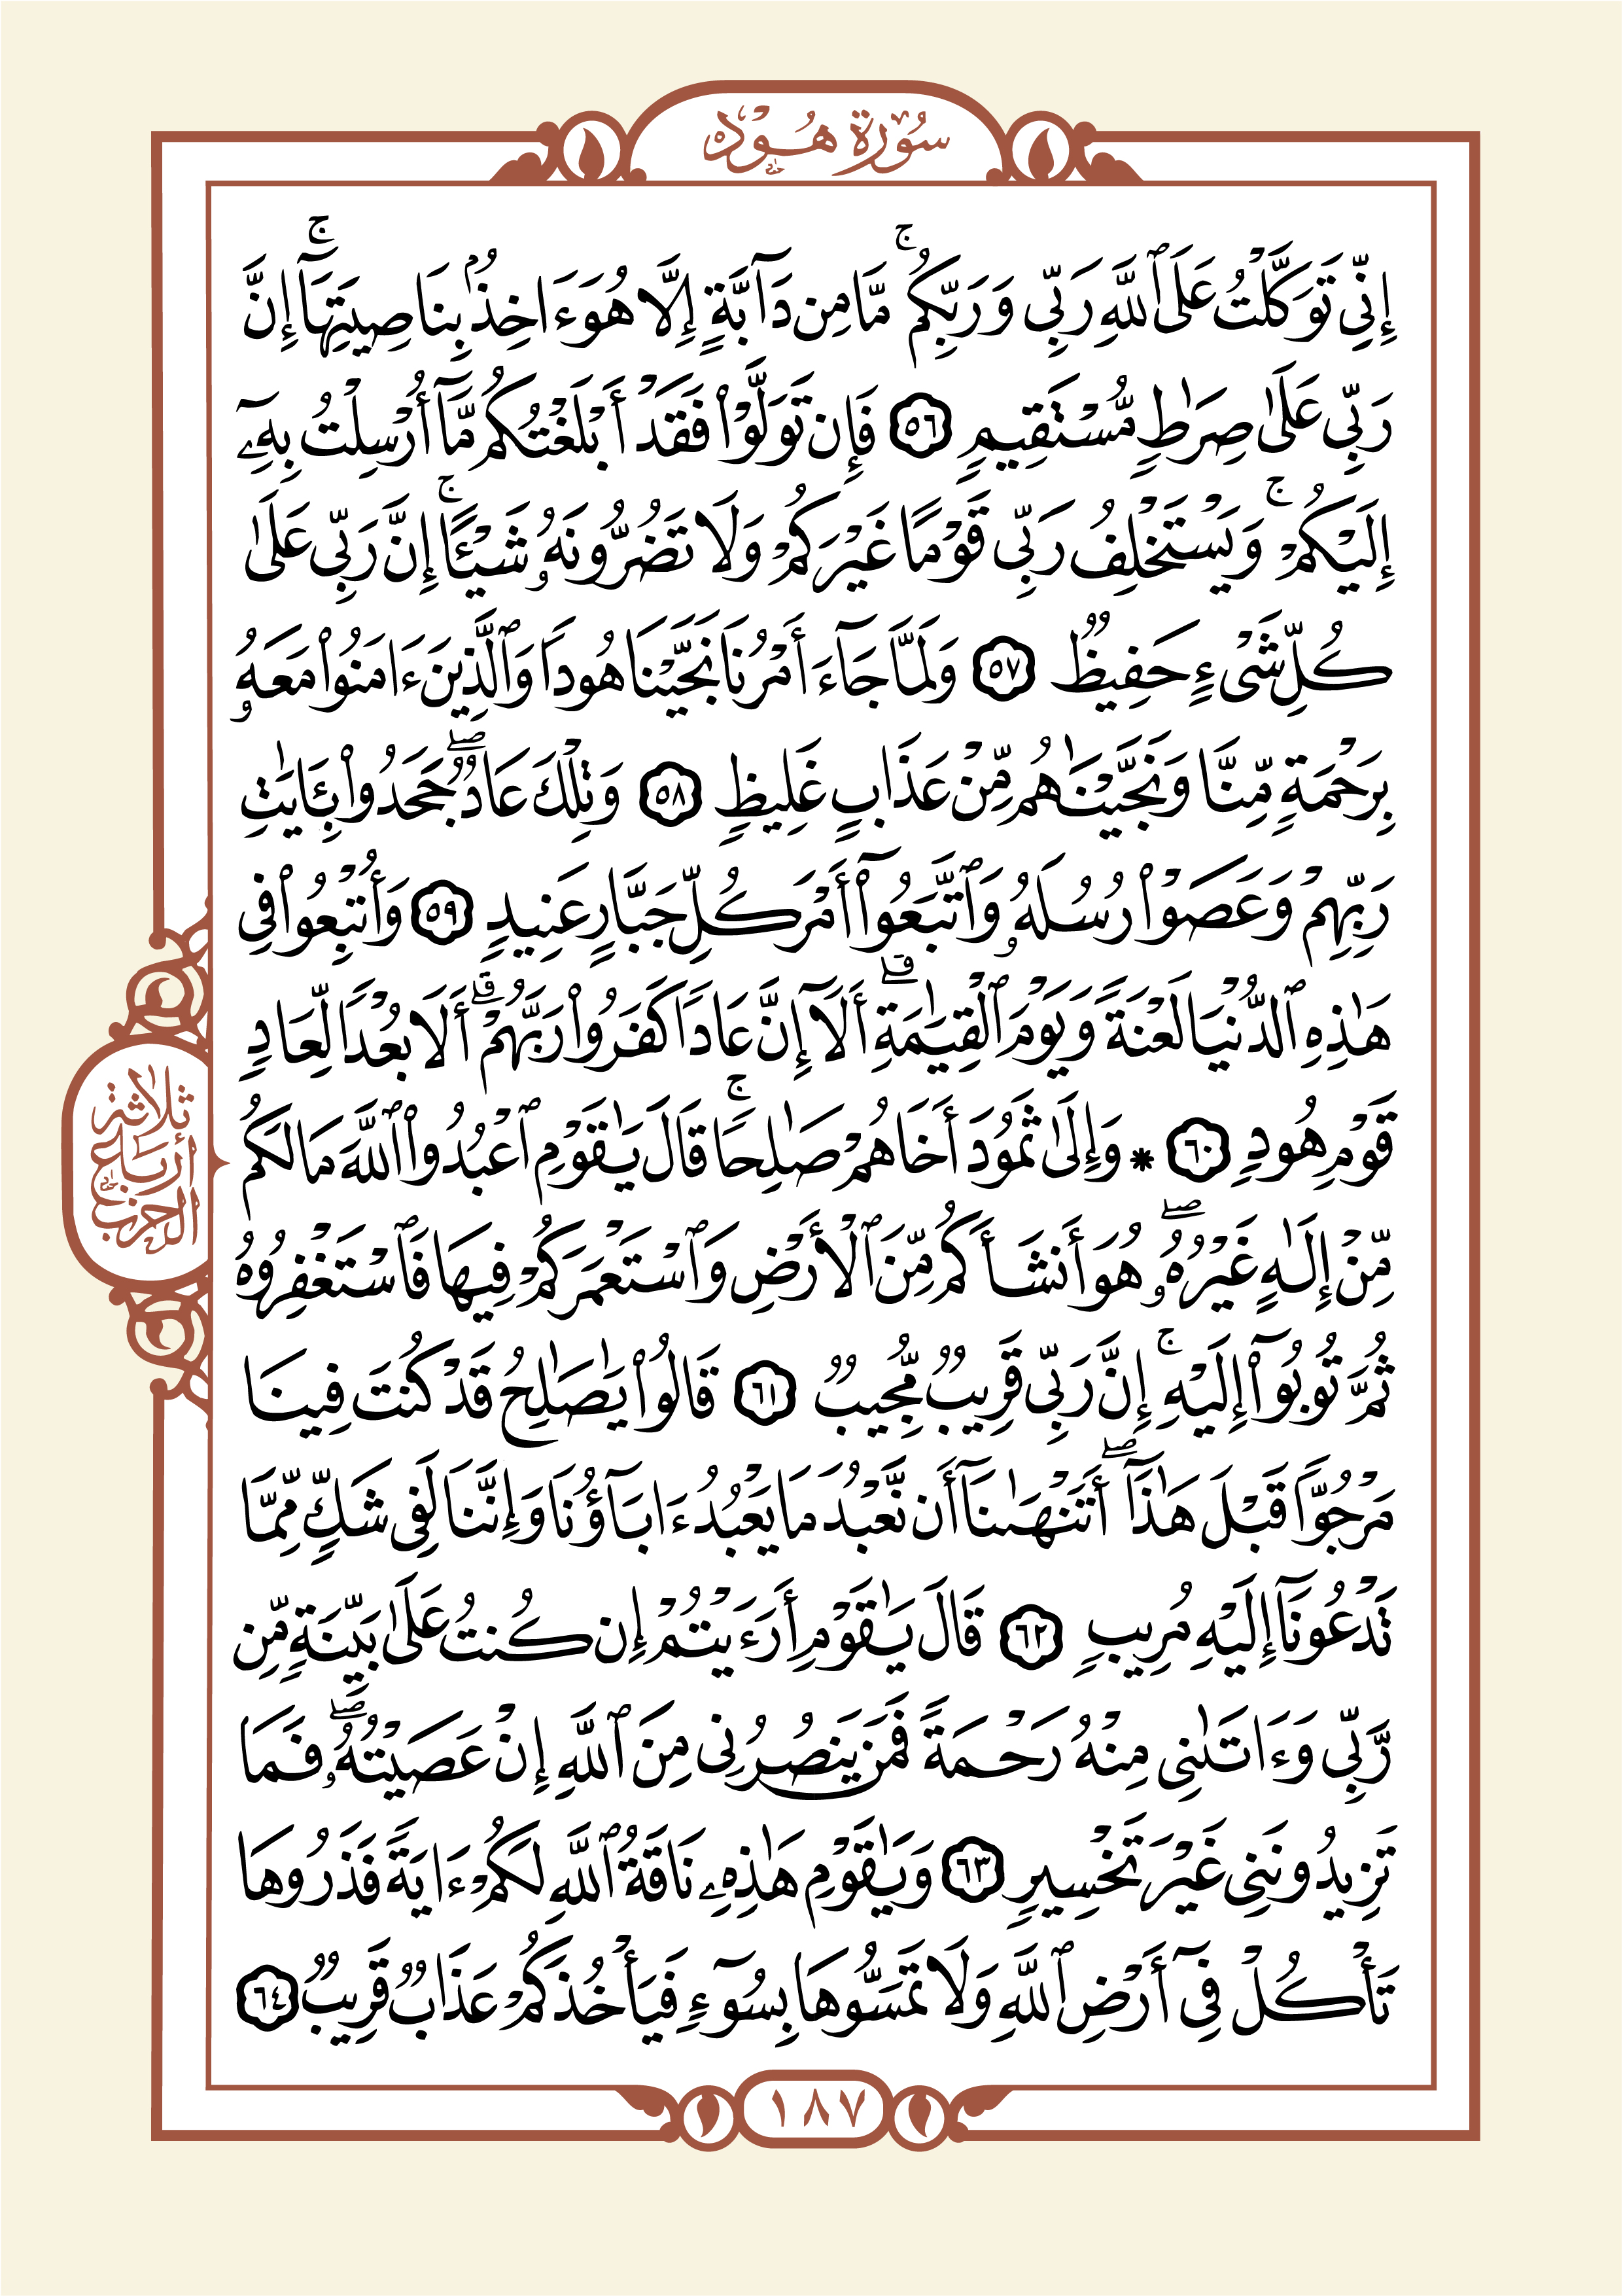 سُورَةُ هُودٍ
إِنِّي تَوَكَّلْتُ عَلَى ٱللَّهِ رَبِّي وَرَبِّكُمۚ مَّا مِن دَآبَّةٍ إِلَّا هُوَ ءَاخِذُۢ بِنَاصِيَتِهَآۚ إِنَّ
رَبِّي عَلَىٰ صِرَٰطٍ مُّسْتَقِيمٍ ٥٦ فَإِن تَوَلَّوْا۟ فَقَدْ أَبْلَغْتُكُم مَّآ أُرْسِلْتُ بِهِۦٓ
إِلَيْكُمْۚ وَيَسْتَخْلِفُ رَبِّي قَوْمًا غَيْرَكُمْ وَلَا تَضُرُّونَهُۥ شَيْـًٔاۚ إِنَّ رَبِّي عَلَىٰ
كُلِّ شَىْءٍ حَفِيظٌ ٥٧ وَلَمَّا جَآءَ أَمْرُنَا نَجَّيْنَا هُودًا وَٱلَّذِينَ ءَامَنُوا۟ مَعَهُۥ
بِرَحْمَةٍ مِّنَّا وَنَجَّيْنَٰهُم مِّنْ عَذَابٍ غَلِيظٍ ٥٨ وَتِلْكَ عَادٌۖ جَحَدُوا۟ بِـَٔايَٰتِ
رَبِّهِمْ وَعَصَوْا۟ رُسُلَهُۥ وَٱتَّبَعُوٓا۟ أَمْرَ كُلِّ جَبَّارٍ عَنِيدٍ ٥٩ وَأُتْبِعُوا۟ فِي
هَٰذِهِ ٱلدُّنْيَا لَعْنَةً وَيَوْمَ ٱلْقِيَٰمَةِۗ أَلَآ إِنَّ عَادًا كَفَرُوا۟ رَبَّهُمْۗ أَلَا بُعْدًا لِّعَادٍ
قَوْمِ هُودٍ ٦٠ * وَإِلَىٰ ثَمُودَ أَخَاهُمْ صَٰلِحًاۚ قَالَ يَٰقَوْمِ ٱعْبُدُوا۟ ٱللَّهَ مَا لَكُم
مِّنْ إِلَٰهٍ غَيْرُهُۥۖ هُوَ أَنشَأَكُم مِّنَ ٱلْأَرْضِ وَٱسْتَعْمَرَكُمْ فِيهَا فَٱسْتَغْفِرُوهُ
ثُمَّ تُوبُوٓا۟ إِلَيْهِۚ إِنَّ رَبِّي قَرِيبٌ مُّجِيبٌ ٦١ قَالُوا۟ يَٰصَٰلِحُ قَدْ كُنتَ فِينَا
مَرْجُوًّا قَبْلَ هَٰذَآۖ أَتَنْهَىٰنَآ أَن نَّعْبُدَ مَا يَعْبُدُ ءَابَآؤُنَا وَإِنَّنَا لَفِى شَكٍّ مِّمَّا
تَدْعُونَآ إِلَيْهِ مُرِيبٍ ٦٢ قَالَ يَٰقَوْمِ أَرَءَيْتُمْ إِن كُنتُ عَلَىٰ بَيِّنَةٍ مِّن
رَّبِّي وَءَاتَىٰنِى مِنْهُ رَحْمَةً فَمَن يَنصُرُنِى مِنَ ٱللَّهِ إِنْ عَصَيْتُهُۥۖ فَمَا
تَزِيدُونَنِى غَيْرَ تَخْسِيرٍ ٦٣ وَيَٰقَوْمِ هَٰذِهِۦ نَاقَةُ ٱللَّهِ لَكُمْ ءَايَةً فَذَرُوهَا
تَأْكُلْ فِىٓ أَرْضِ ٱللَّهِ وَلَا تَمَسُّوهَا بِسُوٓءٍ فَيَأْخُذَكُمْ عَذَابٌ قَرِيبٌ ٦٤
ثلاثة
أرباع
الحزب
١٨٧